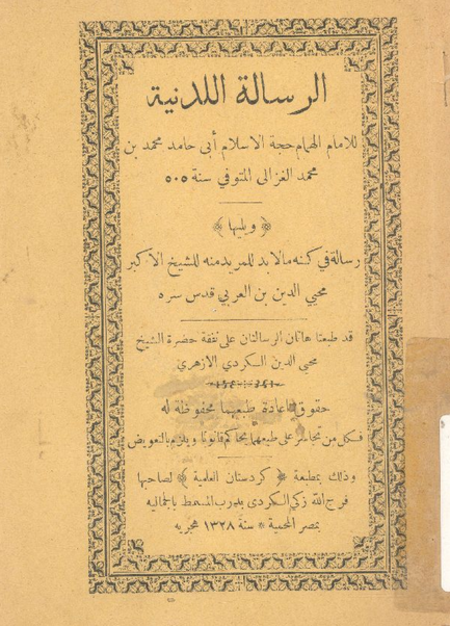 الرسالة اللدنية
للامام الهمام حجة الاسلام أبى حامد محمد بن
محمد الغزالى المتوفي سنة ٥٠٥
﴿ ويليها ﴾
رسالة في كنه مالابد للمريد منه للشيخ الاكبر
محيي الدين بن العربي قدس سره
قد طبعتا هاتان الرسالتان على نفقة حضرة الشيخ
محيي الدين الكردي الازهري
حقوق اعادة طبعهما محفوظة له
فكل من تجاسر على طبعهما يحاكم قانونا ويلزم بالتعويض
وذلك بمطبعة ﴿ كردستان العلمية ﴾ لصاحبها
فرج الله زكي الكردى بدرب المسمط بالجماليه
بمصر المحمية * سنة ١٣٢٨ هجريه